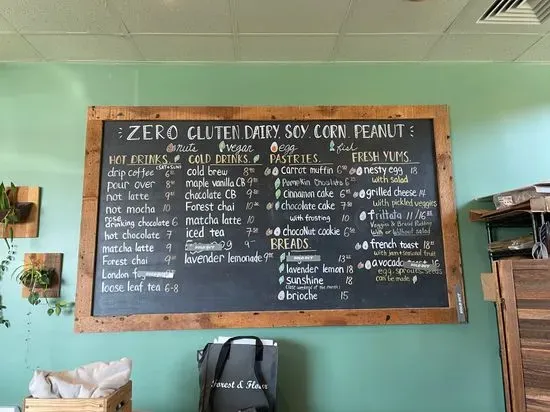 ZERO GLUTEN, DAIRY, SOY, CORN, PEANUT
nuts vegan egg fish
HOT DRINKS
(SAT + SUN)
drip coffee 6
pour over 8
nut latte 9
nut mocha 10
rose
drinking chocolate 6
hot chocolate 7
matcha latte 9
Forest chai 9
London
loose leaf tea 6-8
COLD DRINKS
cold brew 8
maple vanilla CB 9
chocolate CB 9
Forest chai 10
matcha latte 10
iced tea 7
9
lavender lemonade 9
PASTRIES
carrot muffin 6
Pumpkin Chocolate 6
cinnamon cake 6
chocolate cake 7
with frosting 10
chocoNut cookie 6
BREADS
13
lavender lemon 18
sunshine 18
(last weekend of the month)
brioche 15
FRESH YUMS
nesty egg 18
with salad
grilled cheese 14
with pickled veggies
frittata 11/16
Veggies & Bread Pudding
with or without salad
french toast 18
with jam + seasonal fruit
avocado 16
egg, sprouts, seeds
can be made
Forest & Flour